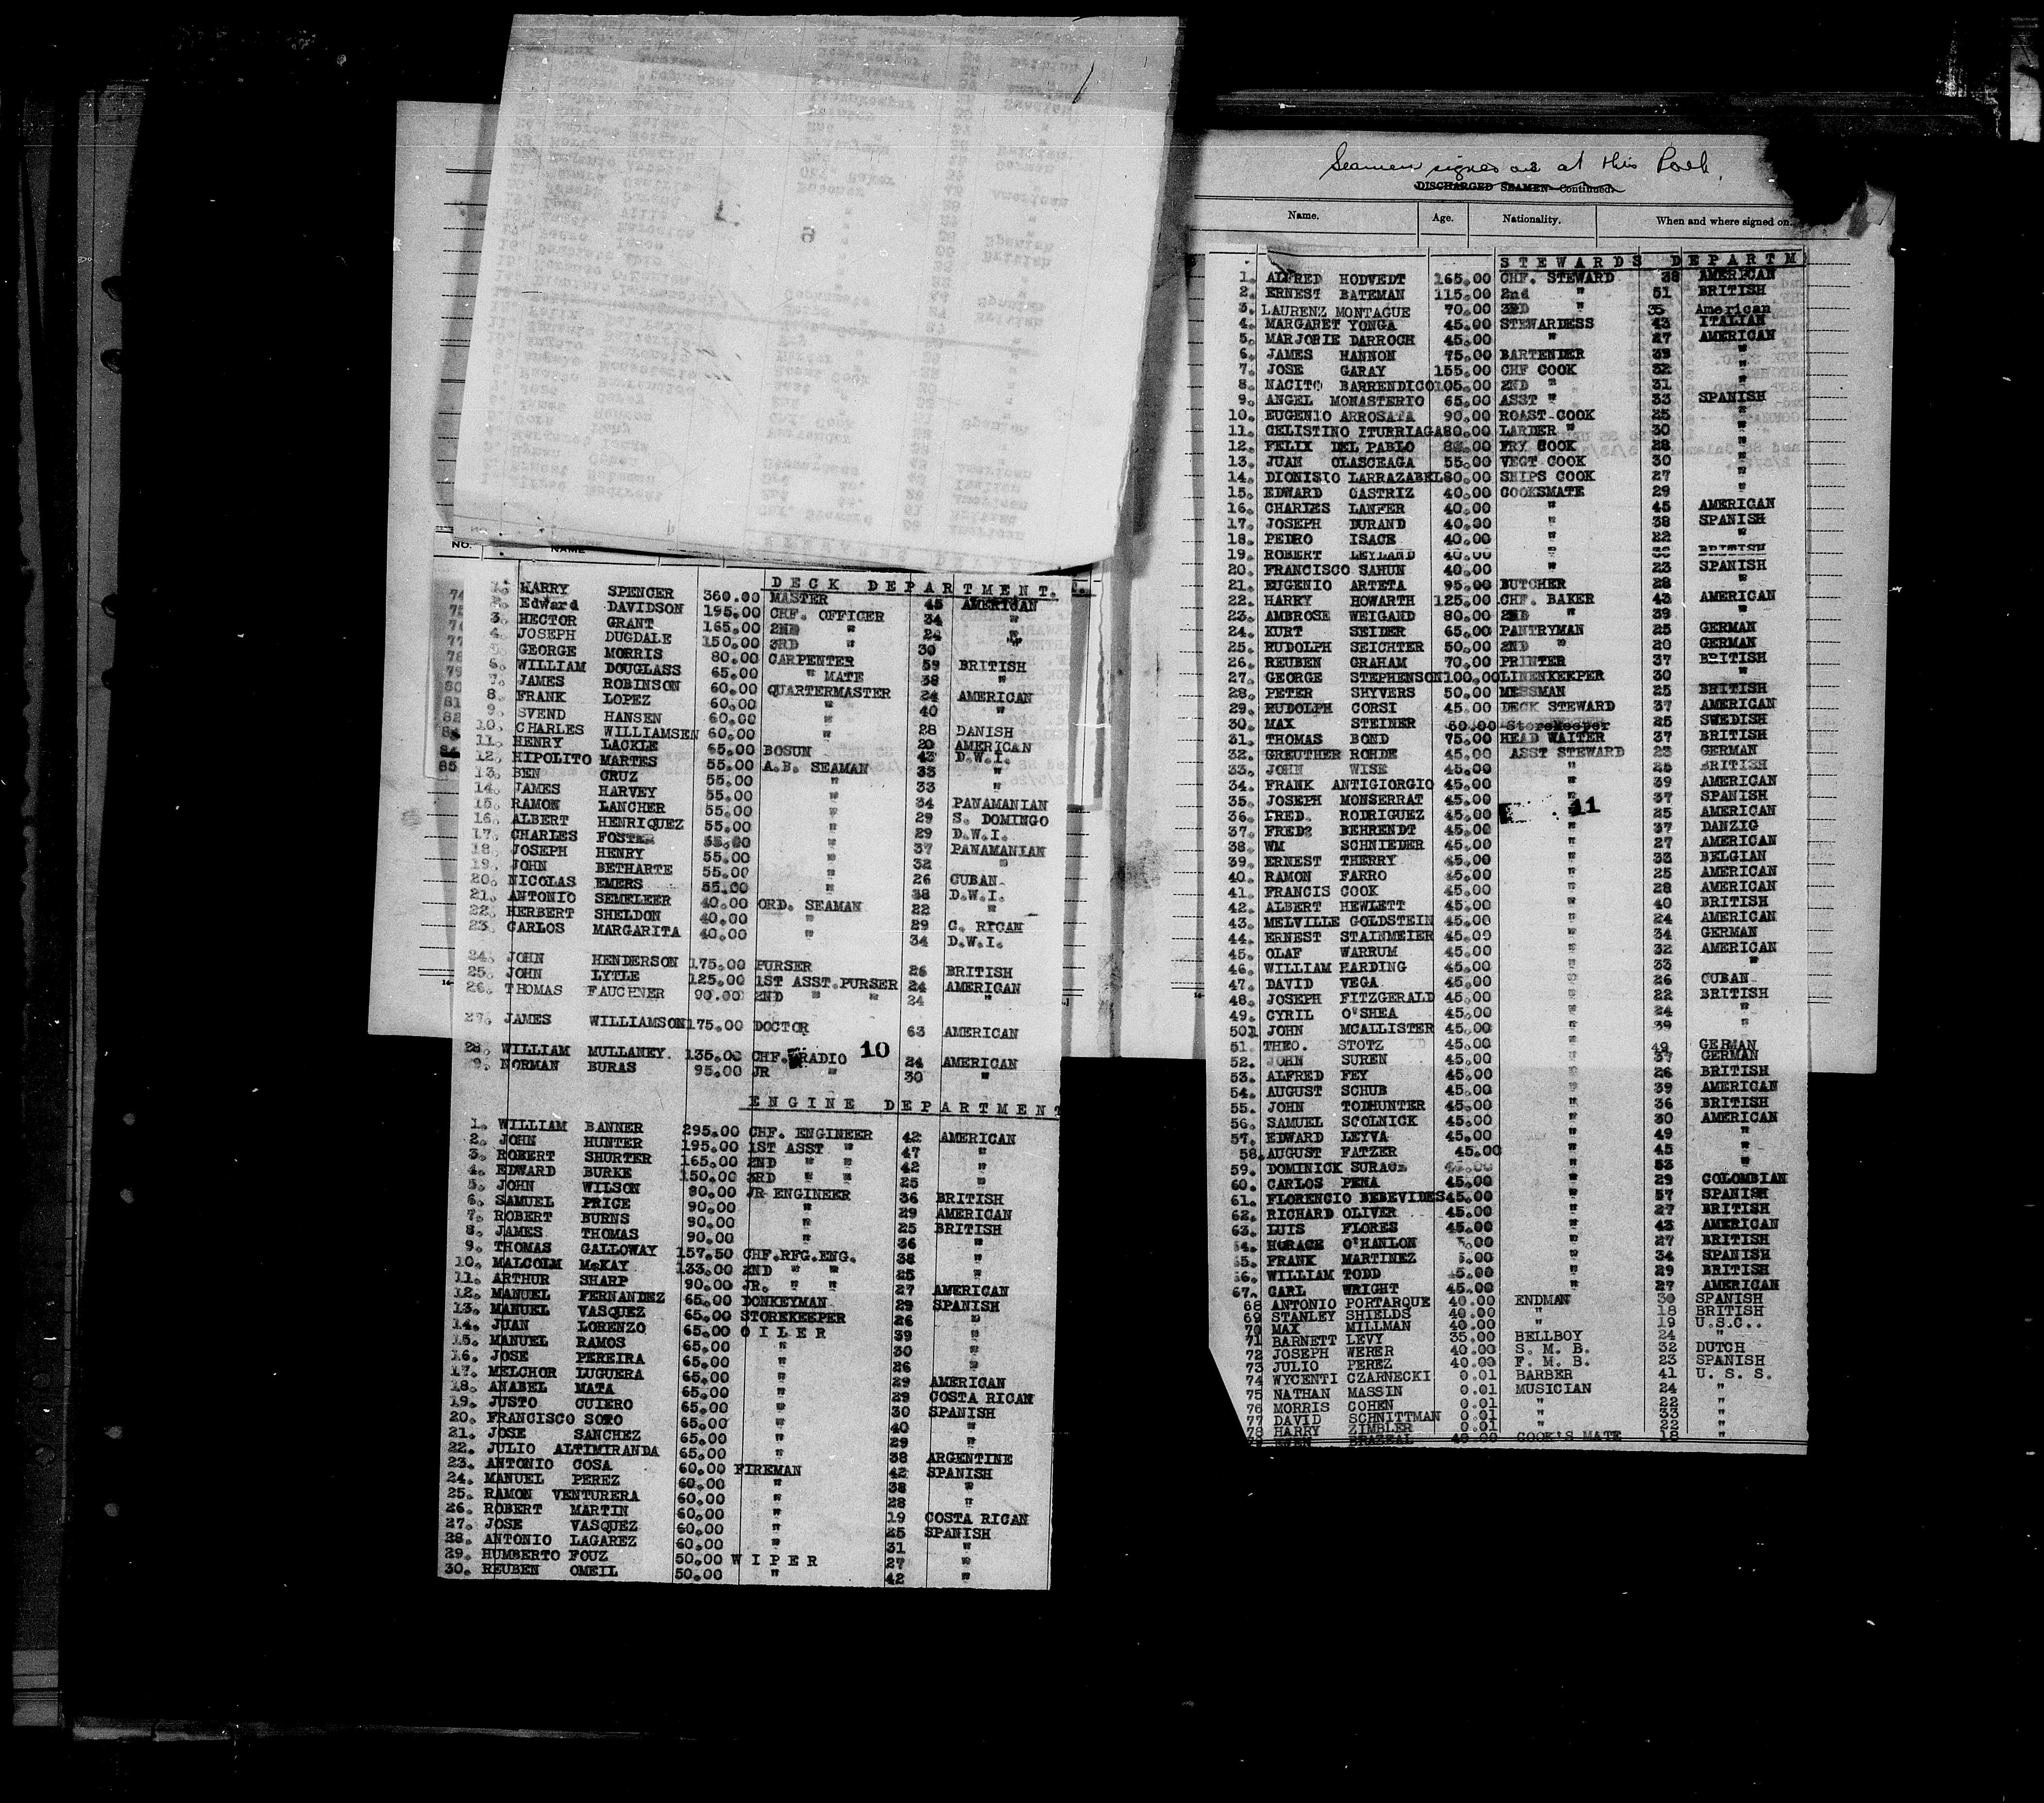 NO. NAME
DECK DEPARTMENT.
1. HARRY SPENCER 360.00 MASTER 45 AMERICAN
2. Edward DAVIDSON 195.00 CHF. OFFICER 34 "
3. HECTOR GRANT 165.00 2ND " 24 "
4. JOSEPH DUGDALE 150.00 3RD " 30 "
5. GEORGE MORRIS 80.00 CARPENTER 59 BRITISH
6. WILLIAM DOUGLASS 65.00 " MATE 38 "
7. JAMES ROBINSON 60.00 QUARTERMASTER 24 AMERICAN
8. FRANK LOPEZ 60.00 " 40 "
9. SVEND HANSEN 60.00 " 28 DANISH
10. CHARLES WILLIAMSEN 60.00 " 20 AMERICAN
11. HENRY LACKLE 65.00 BOSUN 43 D.W.I.
12. HIPOLITO MARTES 55.00 A.B. SEAMAN 33 "
13. BEN CRUZ 55.00 " 33 "
14. JAMES HARVEY 55.00 " 34 PANAMANIAN
15. RAMON LANCHER 55.00 " 29 S. DOMINGO
16. ALBERT HENRIQUEZ 55.00 " 29 D.W.I.
17. CHARLES FOSTER 55.00 " 37 PANAMANIAN
18. JOSEPH HENRY 55.00 " 32 "
19. JOHN BETHARTE 55.00 " 26 CUBAN
20. NICOLAS EMERS 55.00 " 38 D.W.I.
21. ANTONIO SEMELEER 40.00 ORD. SEAMAN 22 "
22. HERBERT SHELDON 40.00 " 29 C. RICAN
23. CARLOS MARGARITA 40.00 " 34 D.W.I.
24. JOHN HENDERSON 175.00 PURSER 26 BRITISH
25. JOHN LYTLE 125.00 1ST ASST.PURSER 24 AMERICAN
26. THOMAS FAUCHNER 90.00 2ND " " 24 "
27. JAMES WILLIAMSON 175.00 DOCTOR 63 AMERICAN
10
28. WILLIAM MULLANEY. 135.00 CHF. RADIO 24 AMERICAN
29. NORMAN BURAS 95.00 JR " 30 "
ENGINE DEPARTMENT
1. WILLIAM BANNER 295.00 CHF. ENGINEER 42 AMERICAN
2. JOHN HUNTER 195.00 1ST ASST " 47 "
3. ROBERT SHURTER 165.00 2ND " " 42 "
4. EDWARD BURKE 150.00 3RD " " 25 "
5. JOHN WILSON 90.00 JR ENGINEER 36 BRITISH
6. SAMUEL PRICE 90.00 " 29 AMERICAN
7. ROBERT BURNS 90.00 " 25 BRITISH
8. JAMES THOMAS 90.00 " 36 "
9. THOMAS GALLOWAY 157.50 CHF.RFG.ENG. 38 "
10. MALCOLM McKAY 133.00 2ND " " 25 "
11. ARTHUR SHARP 90.00 JR. " " 27 AMERICAN
12. MANUEL FERNANDEZ 65.00 DONKEYMAN 29 SPANISH
13. MANUEL VASQUEZ 65.00 STOREKEEPER 26 "
14. JUAN LORENZO 65.00 OILER 39 "
15. MANUEL RAMOS 65.00 " 30 "
16. JOSE PEREIRA 65.00 " 26 "
17. MELCHOR LUGUERA 65.00 " 29 AMERICAN
18. ANABEL MATA 65.00 " 29 COSTA RICAN
19. JUSTO CUIERO 65.00 " 30 SPANISH
20. FRANCISCO SOTO 65.00 " 40 "
21. JOSE SANCHEZ 65.00 " 29 "
22. JULIO ALTIMIRANDA 65.00 " 38 ARGENTINE
23. ANTONIO COSA 60.00 FIREMAN 42 SPANISH
24. MANUEL PEREZ 60.00 " 38 "
25. RAMON VENTURERA 60.00 " 28 "
26. ROBERT MARTIN 60.00 " 19 COSTA RICAN
27. JOSE VASQUEZ 60.00 " 25 SPANISH
28. ANTONIO LAGAREZ 60.00 " 31 "
29. HUMBERTO FOUZ 50.00 WIPER 27 "
30. REUBEN OMEIL 50.00 " 42 "
Seamen signed on at this Port.
DISCHARGED SEAMEN—Continued.
Name. Age. Nationality. When and where signed on.
STEWARDS DEPARTM
1. ALFRED HODVEDT 165.00 CHF. STEWARD 38 AMERICAN
2. ERNEST BATEMAN 115.00 2nd " 51 BRITISH
3. LAURENZ MONTAGUE 70.00 3RD " 35 American
4. MARGARET YONGA 45.00 STEWARDESS 43 ITALIAN
5. MARJORIE DARROCH 45.00 " 27 AMERICAN
6. JAMES HANNON 75.00 BARTENDER 39 "
7. JOSE GARAY 155.00 CHF COOK 32 "
8. NACITO BARRENDICO 105.00 2ND " 31 "
9. ANGEL MONASTERIO 65.00 ASST " 33 SPANISH
10. EUGENIO ARROSATA 90.00 ROAST COOK 25 "
11. CELISTINO ITURRIAGA 80.00 LARDER " 30 "
12. FELIX DEL PABLO 80.00 FRY COOK 28 "
13. JUAN OLASCEAGA 55.00 VEGT COOK 30 "
14. DIONISIO LARRAZABEL 80.00 SHIPS COOK 27 "
15. EDWARD CASTRIZ 40.00 COOKSMATE 29 "
16. CHARLES LANFER 40.00 " 45 AMERICAN
17. JOSEPH DURAND 40.00 " 38 SPANISH
18. PEDRO ISACE 40.00 " 22 "
19. ROBERT LEYLAND 40.00 " BRITISH
20. FRANCISCO SAHUN 40.00 " 23 SPANISH
21. EUGENIO ARTETA 95.00 BUTCHER 28 "
22. HARRY HOWARTH 125.00 CHF. BAKER 43 AMERICAN
23. AMBROSE WEIGAND 80.00 2ND " 39 "
24. KURT SEIDER 65.00 PANTRYMAN 25 GERMAN
25. RUDOLPH SEICHTER 50.00 2ND " 20 GERMAN
26. REUBEN GRAHAM 70.00 PRINTER 37 BRITISH
27. GEORGE STEPHENSON 100.00 LINENKEEPER 30 "
28. PETER SHYVERS 50.00 MESSMAN 25 BRITISH
29. RUDOLPH CORSI 45.00 DECK STEWARD 37 AMERICAN
30. MAX STEINER 60.00 Storekeeper 25 SWEDISH
31. THOMAS BOND 75.00 HEAD WAITER 37 BRITISH
32. GREUTHER ROHDE 45.00 ASST STEWARD 23 GERMAN
33. JOHN WISE 45.00 " 25 BRITISH
34. FRANK ANTIGIORGIO 45.00 " 39 AMERICAN
35. JOSEPH MONSERRAT 45.00 " 37 SPANISH
11
36. FRED. RODRIGUEZ 45.00 " 25 AMERICAN
37. FRED? BEHRENDT 45.00 " 37 DANZIG
38. WM SCHNIEDER 45.00 " 27 AMERICAN
39. ERNEST THERRY 45.00 " 33 BELGIAN
40. RAMON FARRO 45.00 " 25 AMERICAN
41. FRANCIS COOK 45.00 " 28 AMERICAN
42. ALBERT HEWLETT 45.00 " 40 BRITISH
43. MELVILLE GOLDSTEIN 45.00 " 24 AMERICAN
44. ERNEST STAINMEIER 45.00 " 34 GERMAN
45. OLAF WARRUM 45.00 " 32 AMERICAN
46. WILLIAM HARDING 45.00 " 33 "
47. DAVID VEGA 45.00 " 26 CUBAN
48. JOSEPH FITZGERALD 45.00 " 22 BRITISH
49. CYRIL O'SHEA 45.00 " 24 "
50. JOHN MCALLISTER 45.00 " 39 "
51. THEO. STOTZ 45.00 " 49 GERMAN
52. JOHN SUREN 45.00 " 37 GERMAN
53. ALFRED FEY 45.00 " 26 BRITISH
54. AUGUST SCHUB 45.00 " 39 AMERICAN
55. JOHN TODHUNTER 45.00 " 36 BRITISH
56. SAMUEL SCOLNICK 45.00 " 30 AMERICAN
57. EDWARD LEYVA 45.00 " 49 "
58. AUGUST FATZER 45.00 " 45 "
59. DOMINICK SURACE " 53 "
60. CARLOS PENA 45.00 " 29 COLOMBIAN
61. FLORENCIO BEBEVIDES 45.00 " 57 SPANISH
62. RICHARD OLIVER 45.00 " 27 BRITISH
63. LUIS FLORES 45.00 " 43 AMERICAN
64. HORACE O'HANLON 5.00 " 27 BRITISH
65. FRANK MARTINEZ 5.00 " 34 SPANISH
66. WILLIAM TODD 45.00 " 29 BRITISH
67. CARL WRIGHT 45.00 " 27 AMERICAN
68 ANTONIO PORTARQUE 40.00 ENDMAN 30 SPANISH
69 STANLEY SHIELDS 40.00 " 18 BRITISH
70 MAX MILLMAN 40.00 " 19 U.S.C..
71 BARNETT LEVY 35.00 BELLBOY 24 "
72 JOSEPH WERER 40.00 S. M. B. 32 DUTCH
73 JULIO PEREZ 40.00 F. M. B. 23 SPANISH
74 WYCENTI CZARNECKI 0.01 BARBER 41 U. S. S.
75 NATHAN MASSIN 0.01 MUSICIAN 24 "
76 MORRIS COHEN 0.01 " 22 "
77 DAVID SCHNITTMAN 0.01 " 33 "
78 HARRY ZIMBLER 0.01 " 22 "
BRAZEAL 40.00 COOK'S MATE 18 "